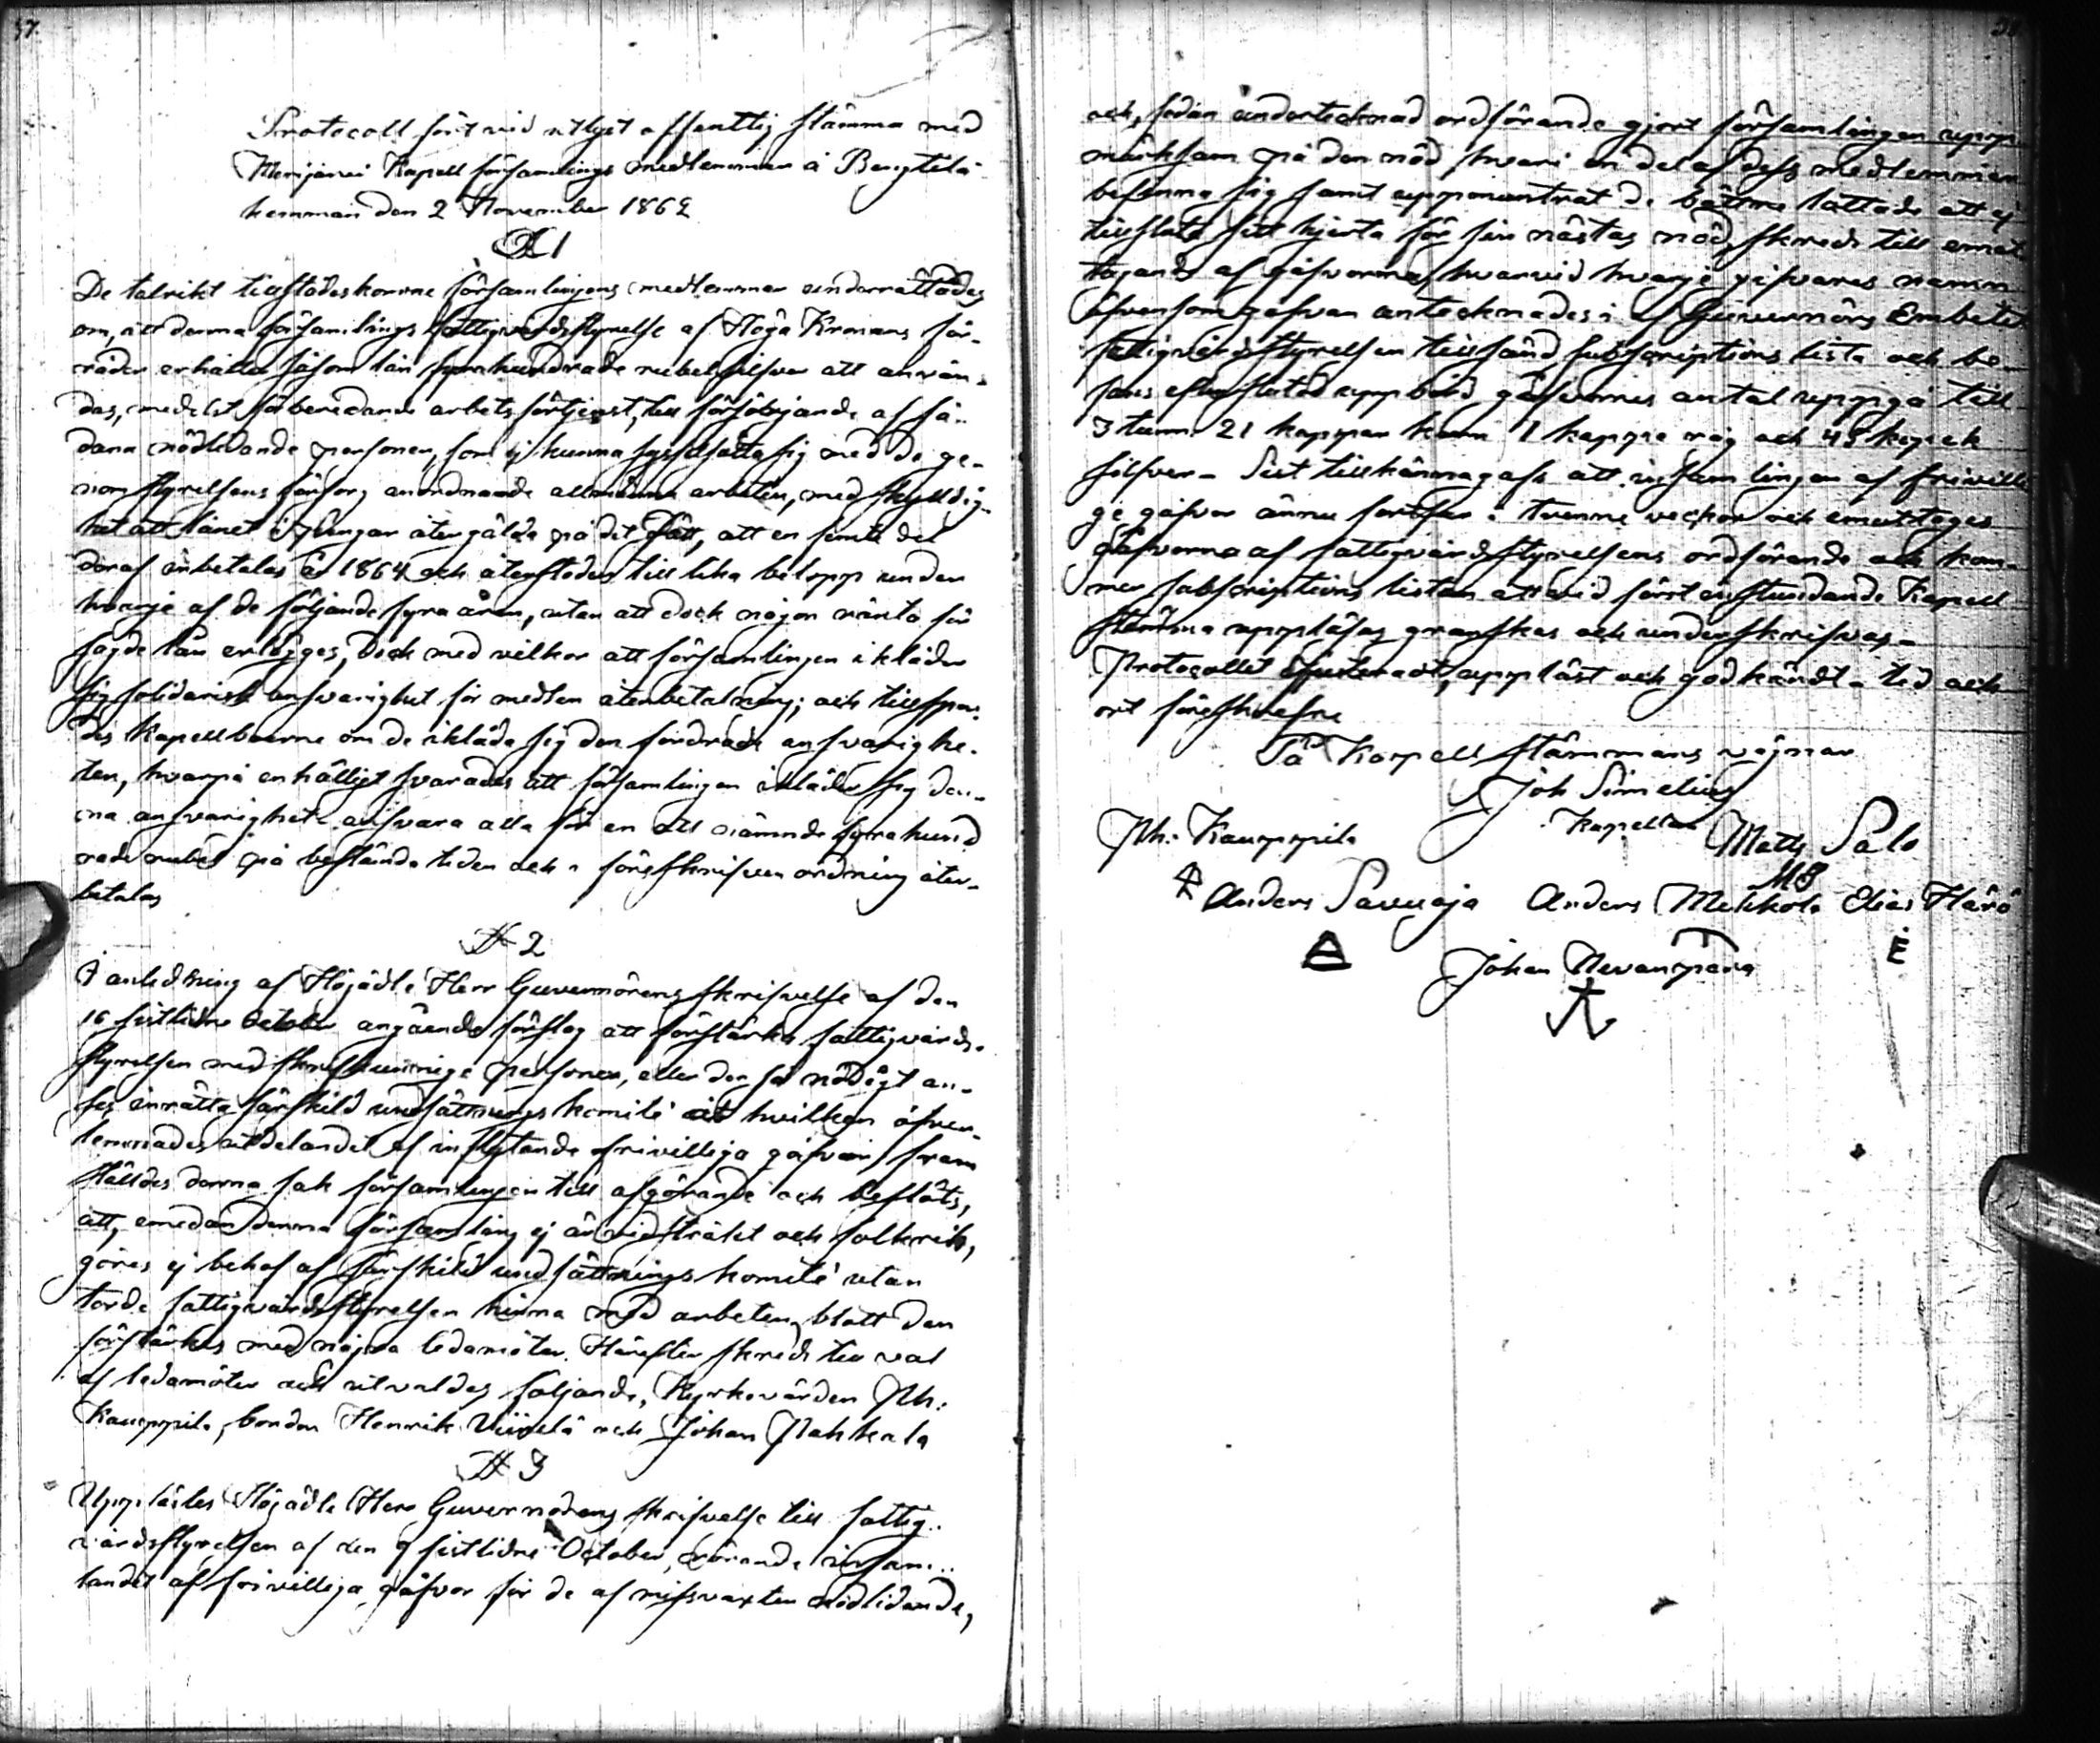 57.
Protocoll fördt vid utlyst offentlig stämma med
Merijärvi Kapell församlings medlemmar å Bengtilä
hemman den 2 November 1862
§ 1
De talrikt tillstädeskomne församlingens medlemmar underrättades
om, att denna församlings fattigvårdsstyrelse af Höga Kronans för-
råder erhåller såsom lån fyrahundrade rubel silfver att använ-
das, medelst förberedande arbetsförtjenst, till försörjande af så-
dana nödlidande personer, som ej kunna sysselsätta sig med de ge-
nom styrelsens försorg anordnade allmänna arbeten, med skyldig-
het att lånet i pengar återgälda på det sätt, att en femte del
deraf inbetalas år 1864 och återstoden till lika belopp under
hvarje af de följande fyra åren, utan att dock någon ränta för
sagde lån erlägges, dock med vilkor att församlingen ikläder
sig solidarisk ansvarighet för medlens återbetalning; och tillspor-
des kapellboerne om de ikläda sig den fordrade ansvarighe-
ten, hvarpå enhälligt svarades att församlingen ikläder sig den-
na ansvarighet ansvara alla för en att nämnde fyrahund
rade rubel på bestämda tider och i föreskrifven ordning åter-
betalas
§ 2
I anledning af Högädle Herr Guvernörens skrifvelse af den
16 sistlidne October angående förslag att förstärka fattigvårds-
styrelsen med skrifkunnige personer, eller der så nödigt an-
ses inrätta särskild undsättningskomité åt hvilken öfver-
lemnades utdelandet af inflytande frivilliga gåfvor, fram
ställdes denna sak församlingen till afgörande och beslöts,
att, emedan denna församling ej är vidsträkt och folkrik,
göres ej behof af särskild undsättnings komité utan
torde fattigvårdsstyrelsen hinna med arbeten, blott den
förstärkes med några ledamöter. Härefter skreds till val
af ledamöter och utvaldes följande, Kyrkovärden Ph:
Kauppila, bonden Henrik Viirelä och Johan Pahkala
§ 3
Upplästes Högädle Herr Guvernörens skrifvelse till fattig-
vårdsstyrelsen af den 9 sistlidne October, rörande insam-
landet af frivilliga gåfvor för de af missvexten nödlidande,
och, sedan undertecknad ordförande gjort församlingen upp-
märksam på den nöd, hvari en del af dess medlemmar
befinna sig samt uppmuntrat de bättre lottade att ej
tillsluta sitt hjerta för sin nästas nöd, skreds till emot
tagande af gåfvorna, hvarvid hvarje gifvares namn
äfvensom gåfvan antecknades i af Guvernörs Embetet
fattigvårdsstyrelsen tillsänd subscriptions lista och be-
fans efter slutad uppbörd gåfvornes antal uppgå till
3 tunn. 21 kappar korn 1 kappe råg och 48 kopek
silfver - Sist tillkännagafs att insamlingen af frivilli
ge gåfvor ännu fortfar i tvenne veckor och emottages
gåfvorna af fattigvårdsstyrelsens ordförande och kom-
mer subscriptions listan att vid först instundande Kapell
stämma uppläsas granskas och underskrifvas -
Protocollet justeradt, uppläst och godkändt - tid och
ort föreskrefne
På Kapell stämmans vägnar
Joh Simelius
Kapellan
Ph: Kauppila
Matts Salo
MS
Anders Savuoja Anders Mehkola Elias Härö
Johan Nevanperä
E